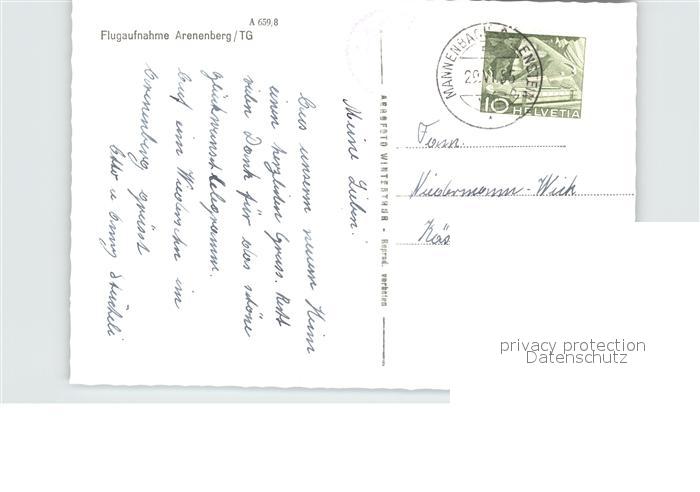 A 659,8
Flugaufnahme Arenenberg/TG
Meine Lieben!
Aus unserm neuen Heim
einen herzlichen Gruss. Recht
vielen Dank für das schöne
Glückwunschtelegramm.
Auf ein Wiedersehn im
Arenenberg grüsst
Otto u Stücheli
AEROFOTO WINTERTHUR - Reprod. verboten
MANNENBACH-SALENSTEIN
29.VI.
10 HELVETIA
Fam.
Niedermann-Wick
privacy protection
Datenschutz